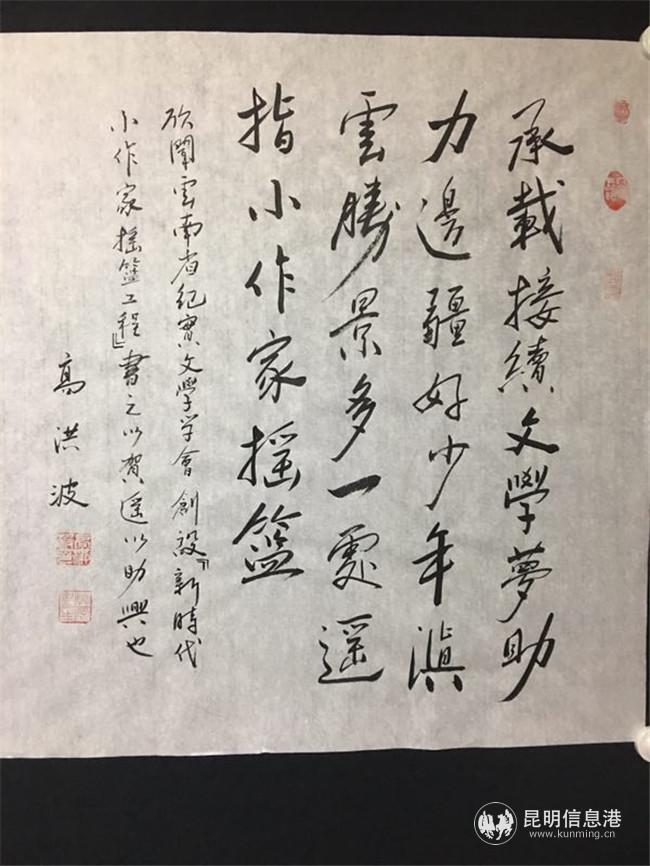 承載接續文學夢助
力邊疆好少年滇
雲勝景多一處遥
指小作家摇籃
欣聞雲南省紀實文學学會創設『新時代
小作家摇籃工程』書之以賀遥以助興也
高洪波
昆明信息港
www.kunming.cn